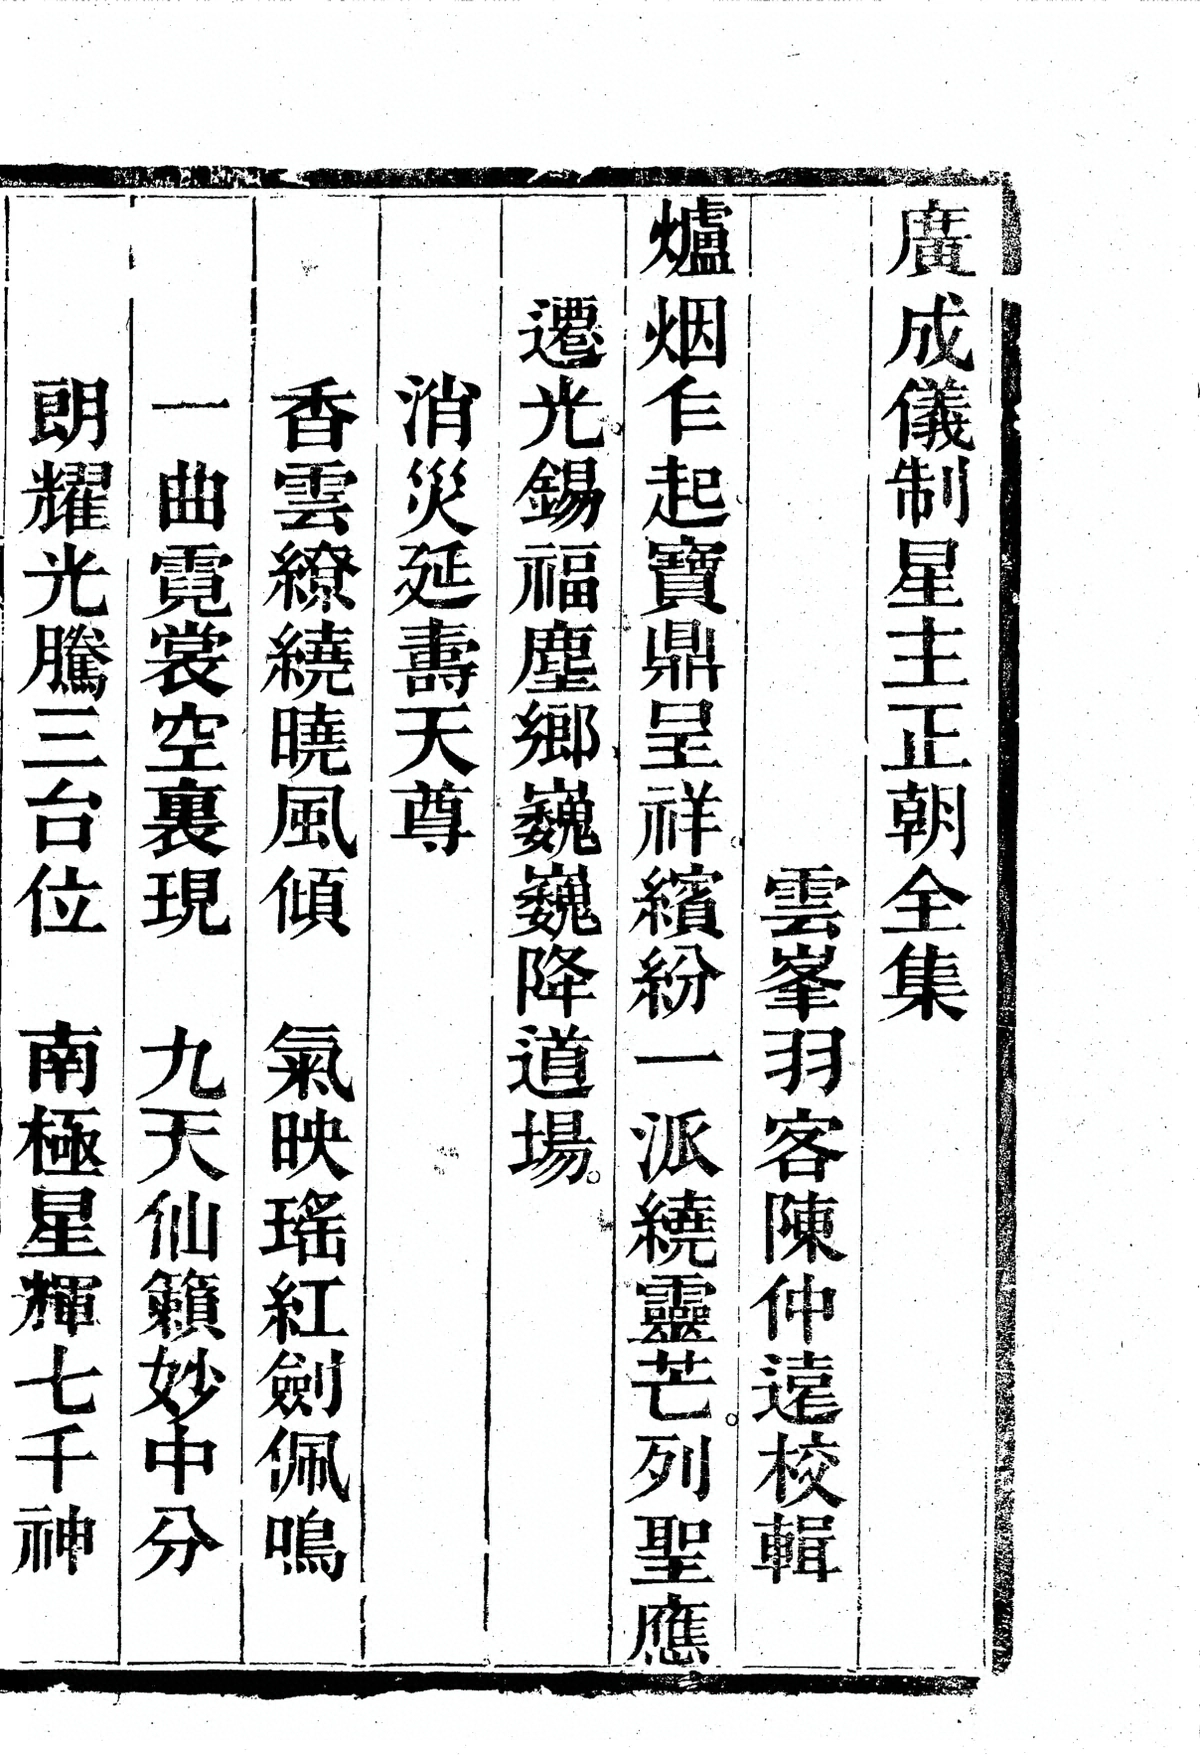 廣成儀制星主正朝全集
雲峯羽客陳仲遠校輯
爐烟乍起寶鼎呈祥繽紛一派繞靈芒。列聖應
遷光錫福塵鄉巍巍降道場。
消災延壽天尊
香雲繚繞曉風傾　氣映瑤紅劍佩鳴
一曲霓裳空裏現　九天仙籟妙中分
朗耀光騰三台位　南極星輝七千神